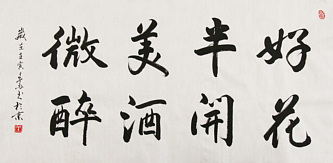 好花
半開
美酒
微醉
歲在壬寅